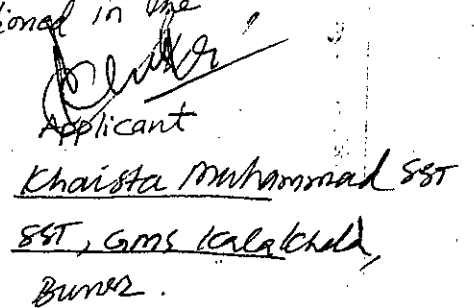 ioned in the
Applicant
Khaista Muhammad SST
SST, GMS Kalakhela,
Buner.